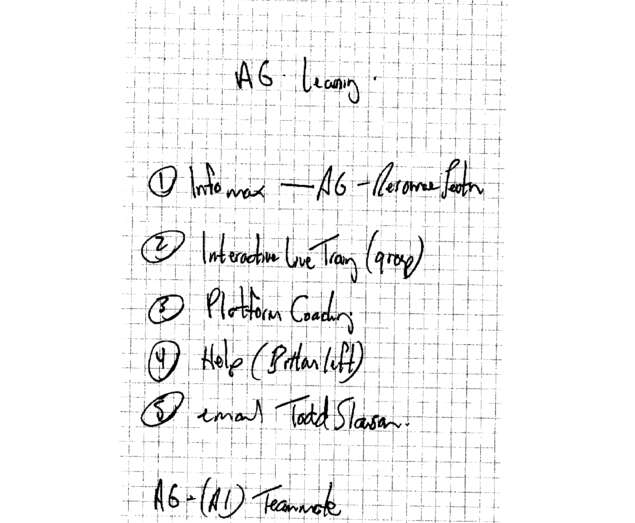 AG · Learning ·
① Infomax — AG - Resource Section
② Interactive Live Traing (group)
③ Platform Coaching
④ Help (Bottom left)
⑤ email Todd
AG - (AI) Teammate